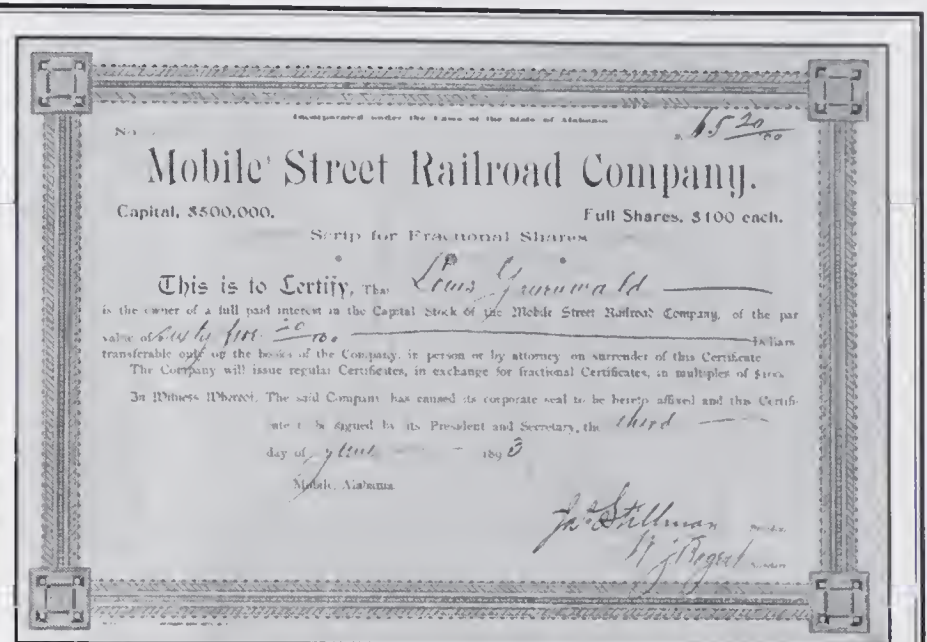 Incorporated under the Laws of the State of Alabama
No. $ 65 20/00
Mobile Street Railroad Company.
Capital, $500,000. Full Shares, $100 each.
Scrip for Fractional Shares
This is to Certify, That Louis Grunewald
is the owner of a full paid interest in the Capital Stock of the Mobile Street Railroad Company, of the par
value of Sixty five 20/00 Dollars
transferable only on the books of the Company, in person or by attorney on surrender of this Certificate
The Company will issue regular Certificates, in exchange for fractional Certificates, in multiples of $100
In Witness Whereof, The said Company has caused its corporate seal to be hereto affixed and this Certifi-
cate to be signed by its President and Secretary, the third
day of June 1893
Mobile, Alabama
Jas Stillman